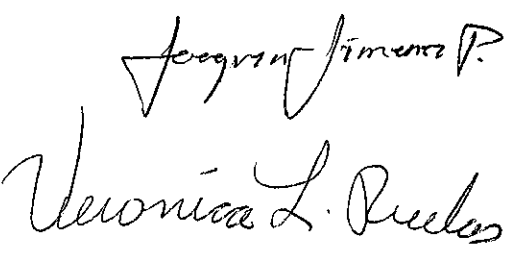 Joaquin Jimenez P.
Veronica L. Ruelas